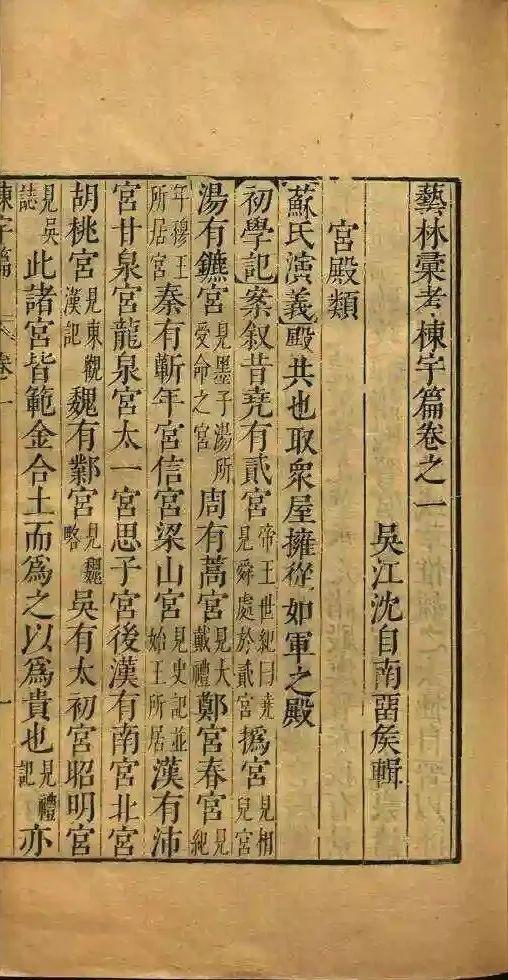 藝林彙考棟宇篇卷之一
吳江沈自南畱矦輯
宮殿類
【蘇氏演義】殿共也取衆屋擁從如軍之殿
【初學記】案叙昔堯有貳宮帝王世紀曰堯見舜處於貳宮撝宮見相兒宮
湯有鑣宮見墨子湯所受命之宮周有蒿宮見大戴禮鄭宮春宮見紀
年穆王所居宮秦有蘄年宮信宮梁山宮見史記並始王所居漢有沛
宮甘泉宮龍泉宮太一宮思子宮後漢有南宮北宮
胡桃宮見東觀漢記魏有鄴宮見魏略吳有太初宮昭明宮
見吳誌此諸宮皆範金合土而爲之以爲貴也見禮記亦
棟宇篇 卷一 一